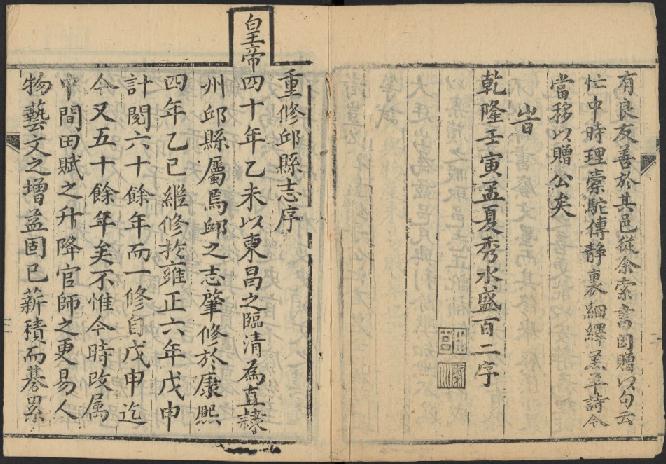 有良友善於其邑從余索書因贈以句云
忙中時理崇駝傳靜裏細繹羔羊詩今
當移以贈公矣
旹
乾隆壬寅孟夏秀水盛百二字
重修邱縣志序
皇帝四十年乙未以東昌之臨清為直隸
州邱縣屬焉邱之志肇修於康熙
四年乙巳繼修於雍正六年戊申
計閱六十餘年而一修自戊申迄
今又五十餘年矣不惟今時改属
中間田賦之升降官師之更易人
物藝文之增益固已薪積而綦累